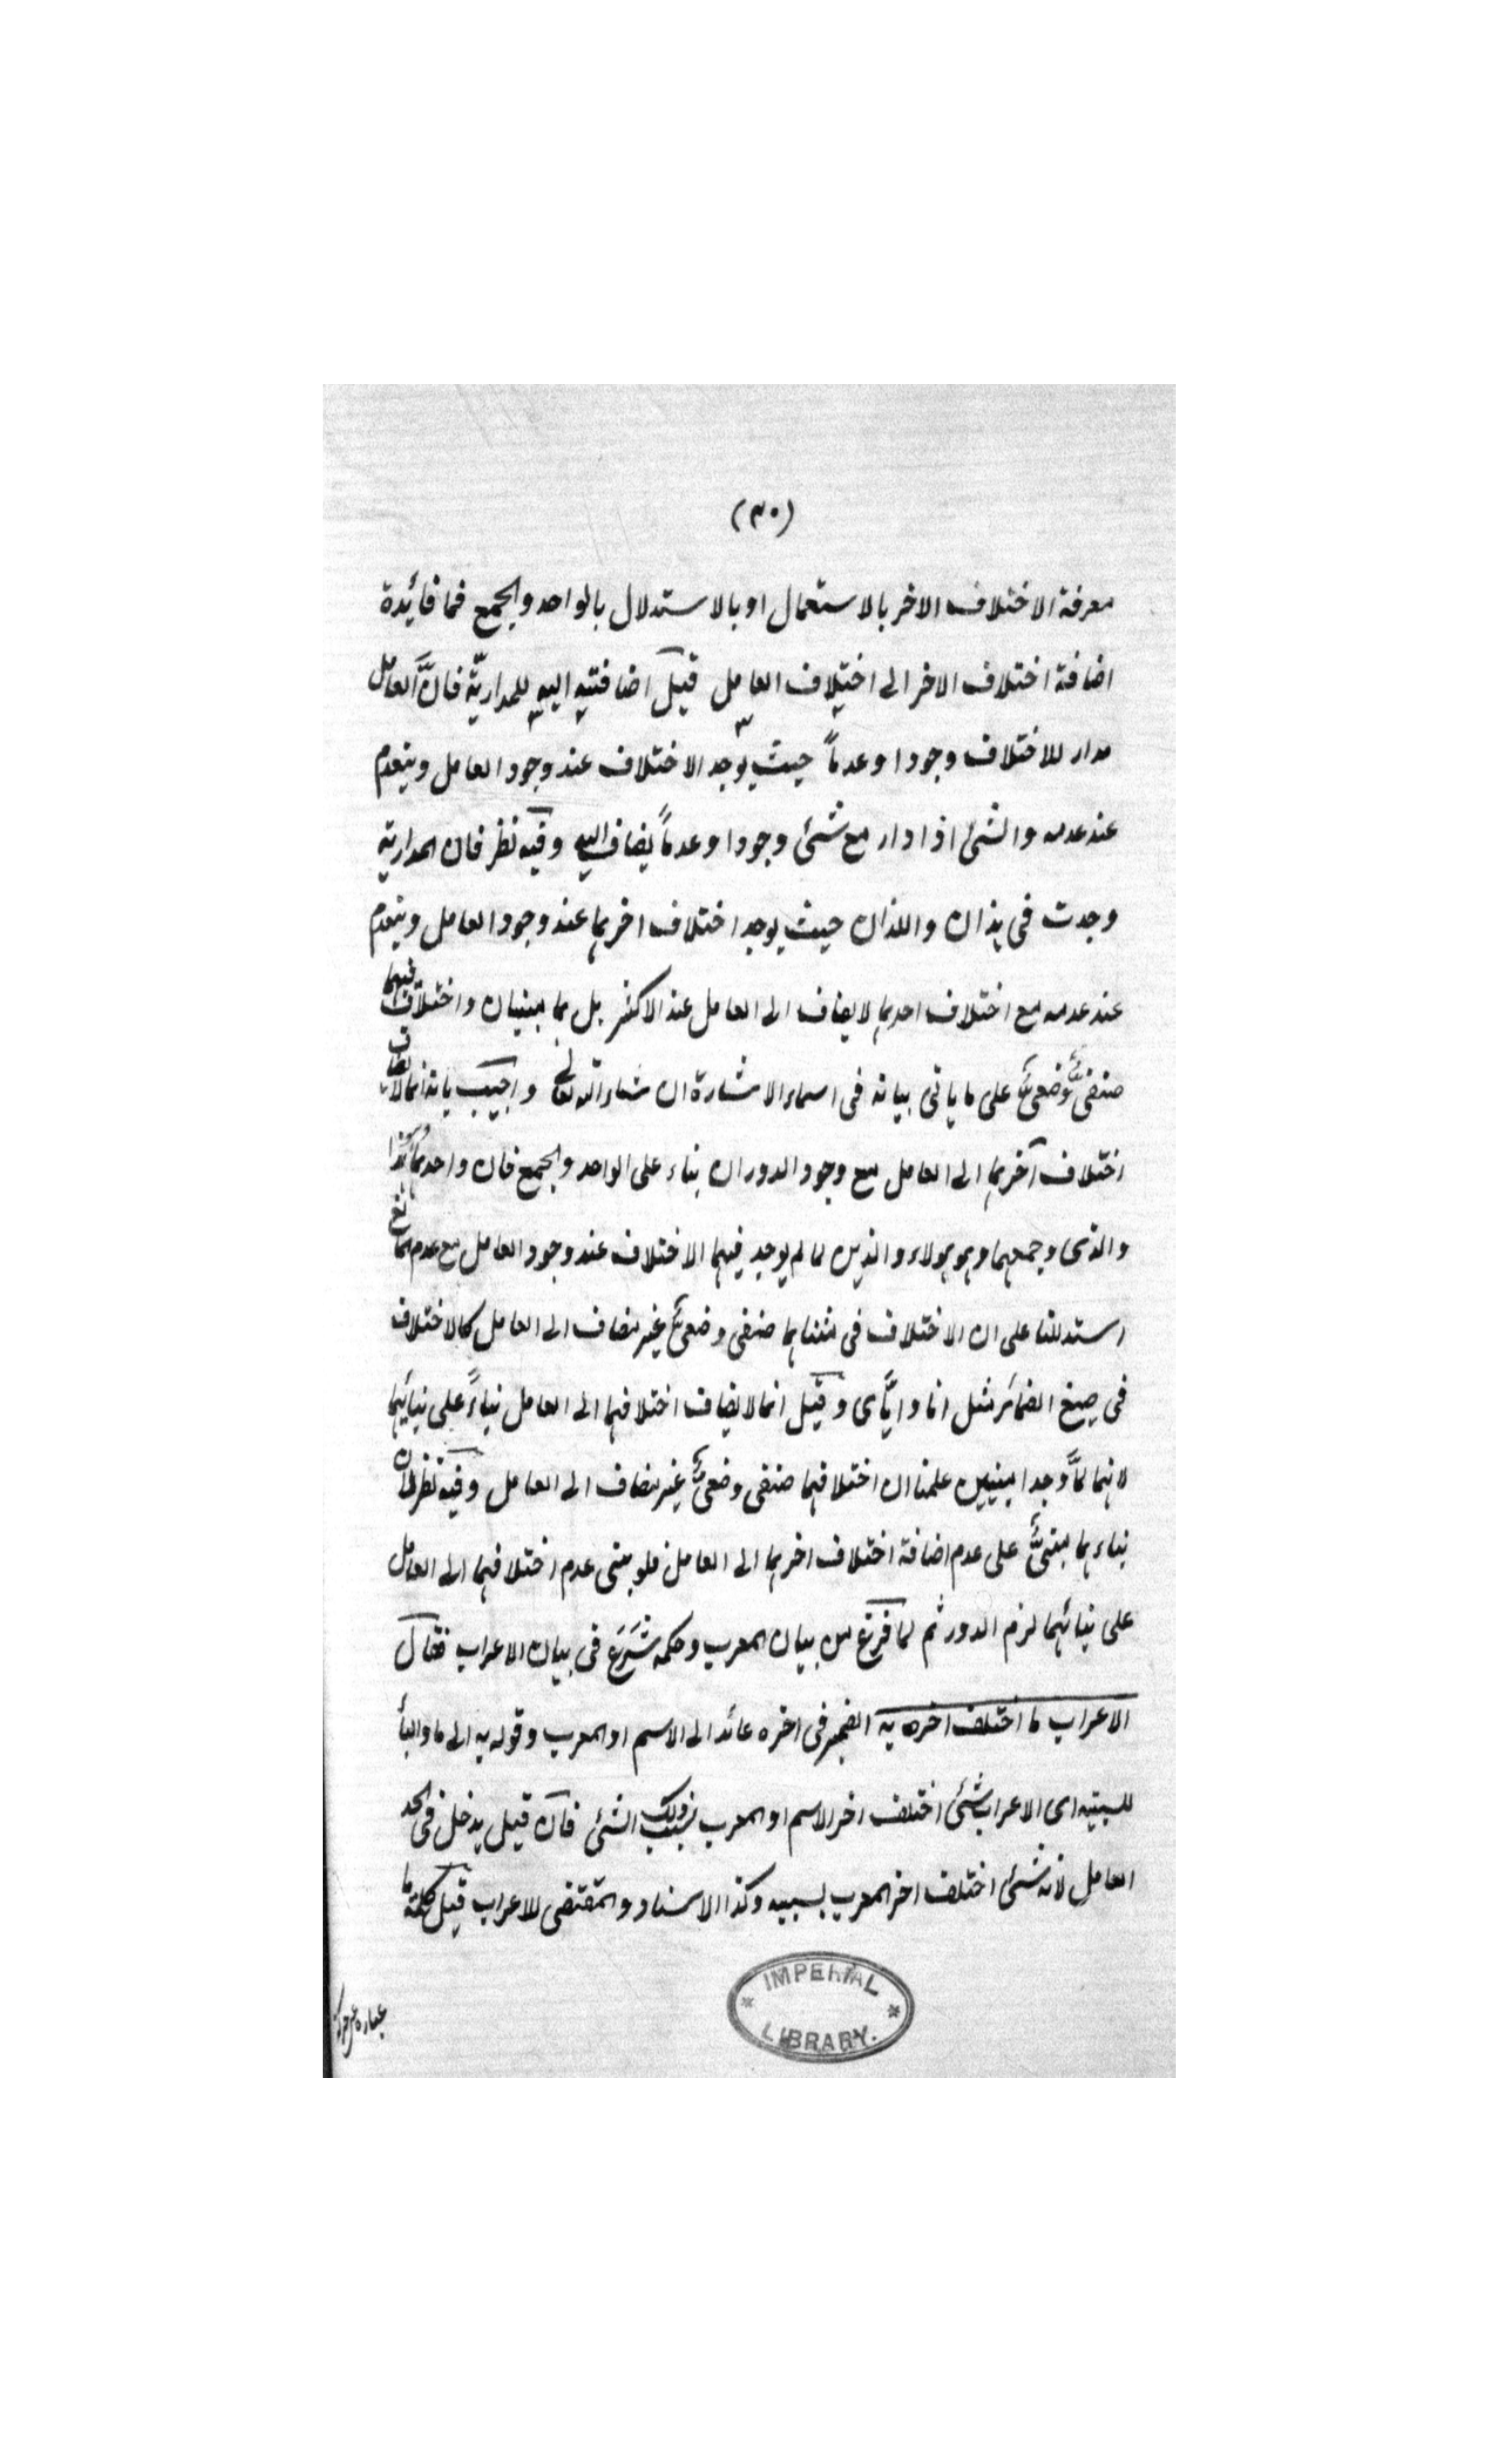 (٣٠)
معرفة الاختلاف الاخر بالاستعمال او بالاستدلال بالواحد والجمع فما فائدة
اضافة اختلاف الاخر الى اختلاف العامل قيل اضافته اليه للمدارية فان العامل
مدار للاختلاف وجودا وعدماً حيث يوجد الاختلاف عند وجود العامل وينعدم
عند عدمه والشئ اذا دار مع شئ وجودا وعدماً يضاف اليه وفيه نظر فان المدارية
وجدت فى هذان واللذان حيث يوجد اختلاف اخرهما عند وجود العامل وينعدم
عند عدمه مع اختلاف احدهما لا يضاف الى العامل عند الاكثر بل هما مبنيان واختلاف فيهما
صنفىٌّ وضعىٌّ على ما ياتى بيانه فى اسماء الاشارة ان شاء الله تعالى واجيب بانه انما لا يضاف
اختلاف آخرهما الى العامل مع وجود الدوران بناء على الواحد والجمع فان واحدهما هذا
والذى وجمعهما وهو هولاء والذين لما لم يوجد فيهما الاختلاف عند وجود العامل مع عدم المانع
استدللنا على ان الاختلاف فى مثناهما صنفى وضعىٌّ غير مضاف الى العامل كالاختلاف
فى صيغ الضمائر مثل انا واياى وقيل انما لا يضاف اختلافهما الى العامل بناءً على بنائهما
لانهما لمّا وجدا مبنيين علمنا ان اختلافهما صنفى وضعىٌّ غير مضاف الى العامل وفيه نظر لان
بناءهما مبنىٌّ على عدم اضافة اختلاف اخرهما الى العامل فلو بنى عدم اختلافهما الى العامل
على بنائهما لزم الدور ثم لما فرغ من بيان المعرب وحكمه شَرَعَ فى بيان الاعراب فقال
الاعراب ما اختلف اخره به الضمير فى اخره عائد الى الاسم او المعرب وقوله به الى ما والبأ
للسببية اى الاعراب شئ اختلف اخر الاسم او المعرب بسبب ذلك الشئ فان قيل يدخل فى الحد
العامل لانه شئ اختلف اخر المعرب بسببه وكذا الاسناد والمقتضى للاعراب قيل كلمة ما
عبارة عن حركة
IMPERIAL
LIBRARY.